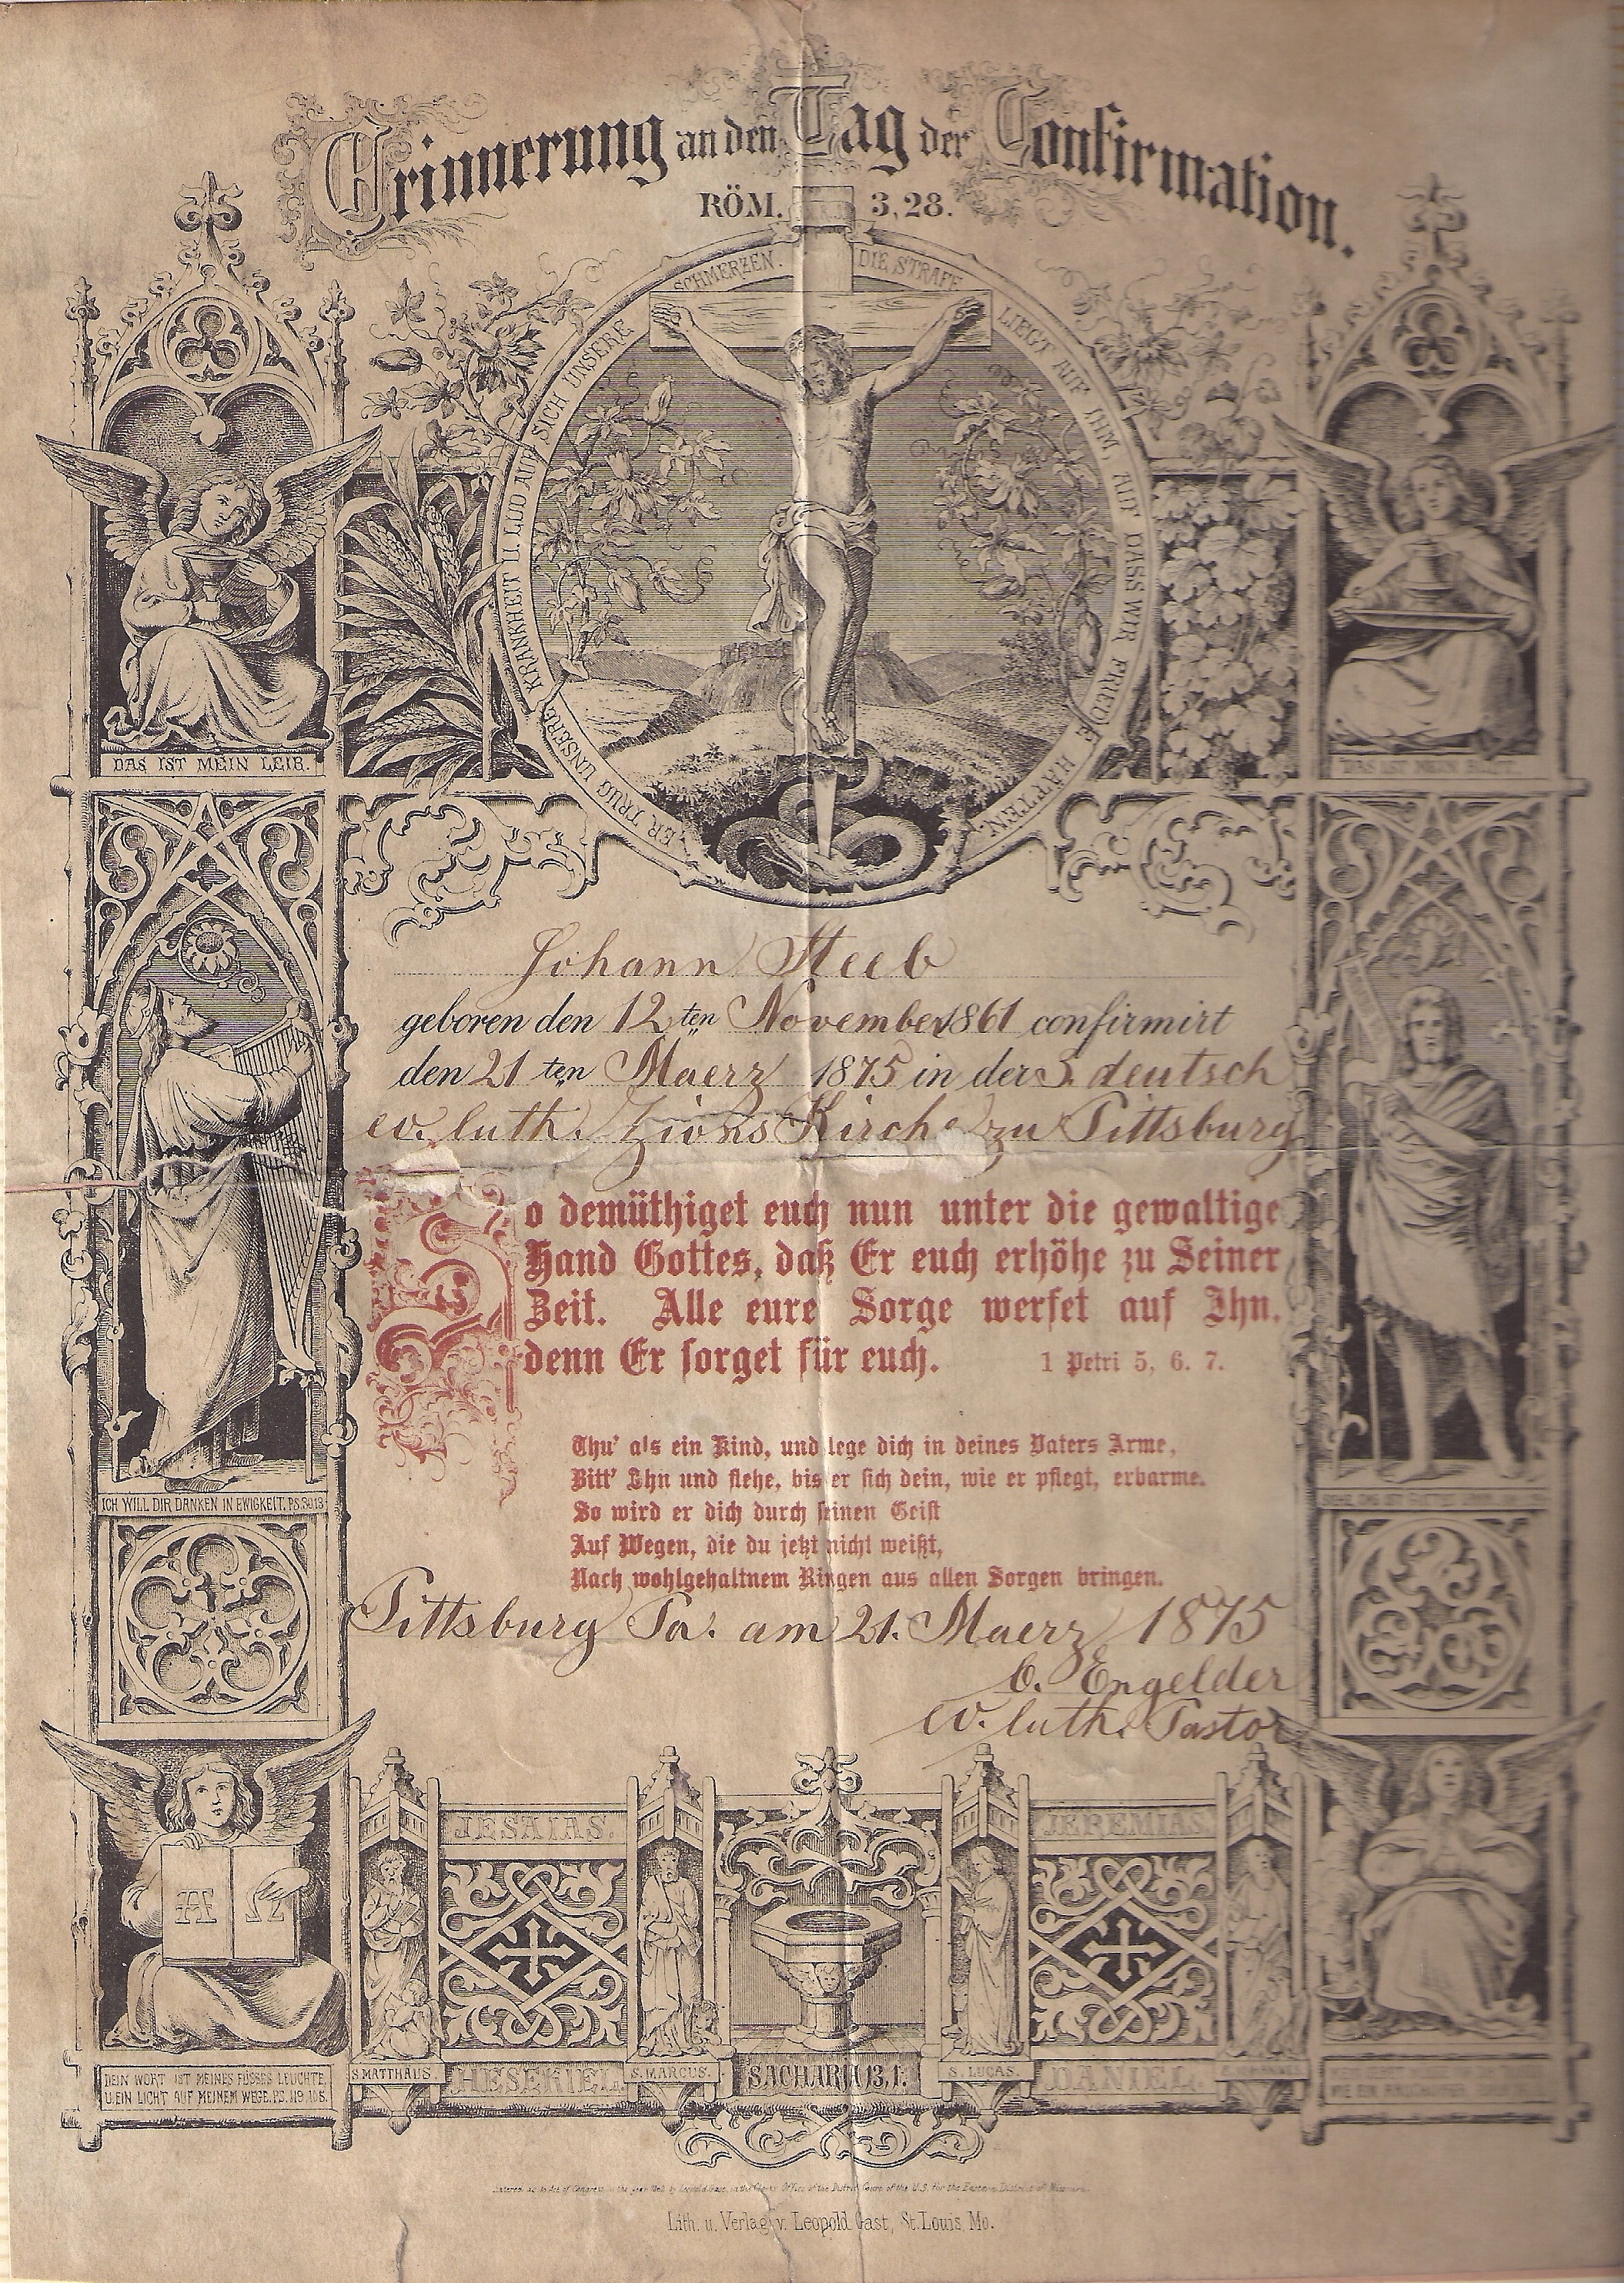 Erinnerung an den Tag der Confirmation.
RÖM. 3,28.
ER TRUG UNSERE KRANKHEIT U. LUD AUF SICH UNSERE SCHMERZEN. DIE STRAFE LIEGT AUF IHM AUF DASS WIR FRIEDE HÄTTEN.
DAS IST MEIN LEIB.
Johann Steeb
geboren den 12ten November 1861 confirmirt
den 21ten Maerz 1875 in der 3. deutsch
ev. luth. Zions Kirche zu Pittsburg
So demüthiget euch nun unter die gewaltige
Hand Gottes, daß Er euch erhöhe zu Seiner
Zeit. Alle eure Sorge werfet auf Ihn,
denn Er sorget für euch. 1 Petri 5, 6. 7.
Thu' als ein Kind, und lege dich in deines Vaters Arme,
Bitt' Ihn und flehe, bis er sich dein, wie er pflegt, erbarme.
So wird er dich durch seinen Geist
Auf Wegen, die du jetzt nicht weißt,
Nach wohlgehaltnem Ringen aus allen Sorgen bringen.
ICH WILL DIR DANKEN IN EWIGKEIT. PS.30.13
Pittsburg Pa. am 21. Maerz 1875
C. Engelder
ev. luth. Pastor
A Ω
JESAIAS. JEREMIAS.
DEIN WORT IST MEINES FUSSES LEUCHTE,
U. EIN LICHT AUF MEINEM WEGE. PS. 119, 105.
S. MATTHÄUS. HESEKIEL. S. MARCUS. SACHARIA 13,1. S. LUCAS. DANIEL.
Entered acc. to Act of Congress in the year by Leopold Gast, in the Clerks Office of the District Court of the U.S. for the Eastern District of Missouri.
Lith. u. Verlag v. Leopold Gast, St. Louis, Mo.